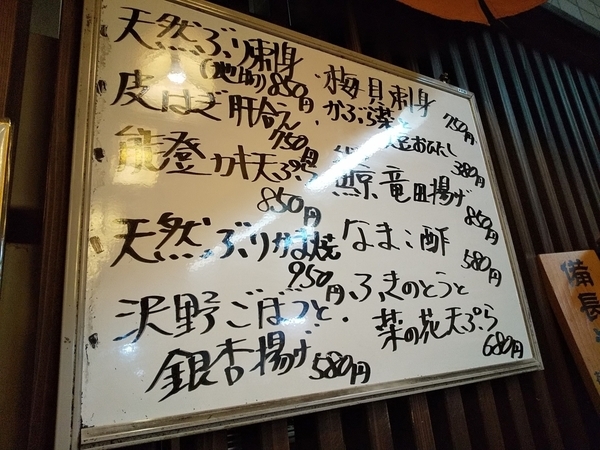 天然ぶり刺身
850円
皮はぎ肝合え
750円
能登カキ天ぷら
850円
天然ぶりかま焼
950円
沢野ごぼうと
銀杏揚げ 580円
梅貝刺身
750円
かぶら菜と
おひたし
380円
鯨竜田揚げ
850円
なまこ酢
580円
ふきのとうと
菜の花天ぷら
680円
備長